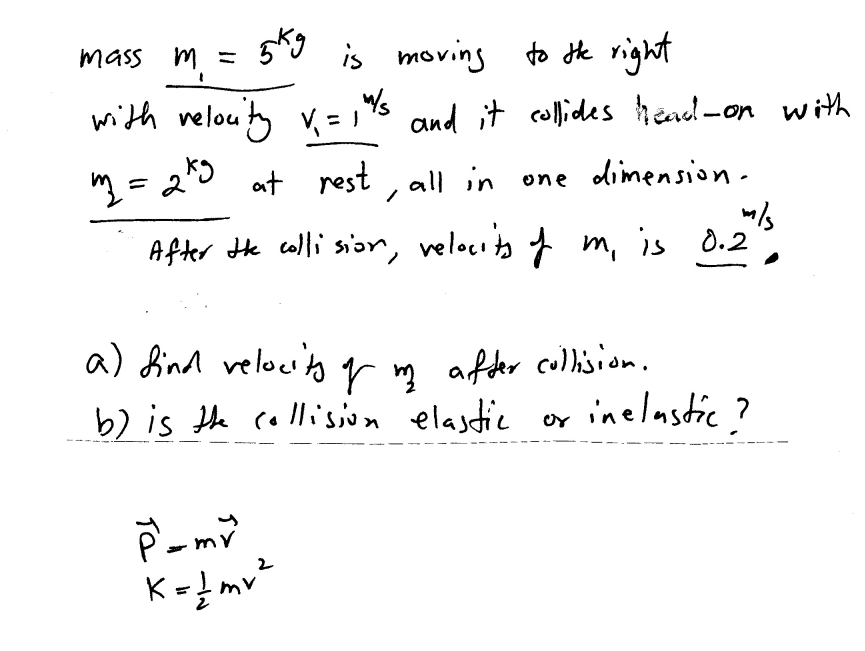 mass m₁ = 5 kg is moving to the right
with velocity v₁ = 1 m/s and it collides head-on with
m₂ = 2 kg at rest, all in one dimension.
After the collision, velocity of m₁ is 0.2 m/s.
a) find velocity of m₂ after collision.
b) is the collision elastic or inelastic?
P⃗ = mv⃗
K = ½ mv²